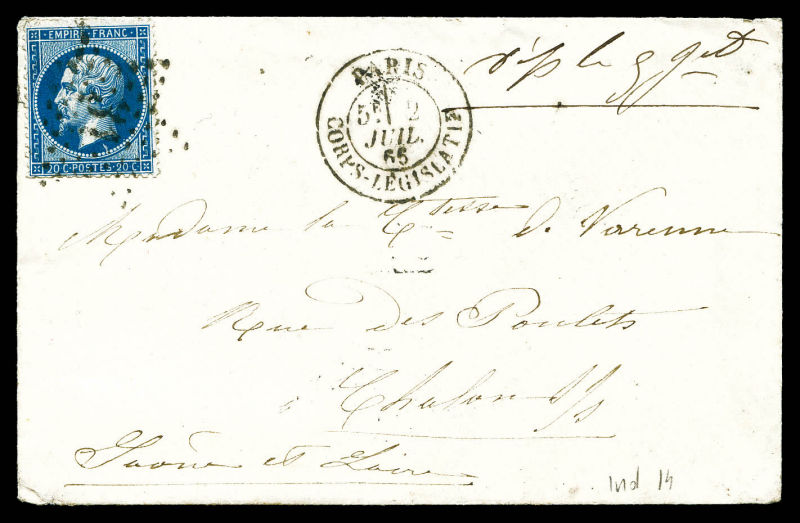 EMPIRE FRANC.
20 C. POSTES 20 C.
PARIS
5E 2
JUIL.
65
CORPS-LÉGISLATIF
rép le 5 Jet
Madame la Ctesse de Varenne
Rue des Poulets
à Chalon s/s
Saône et Loire
Ind 14